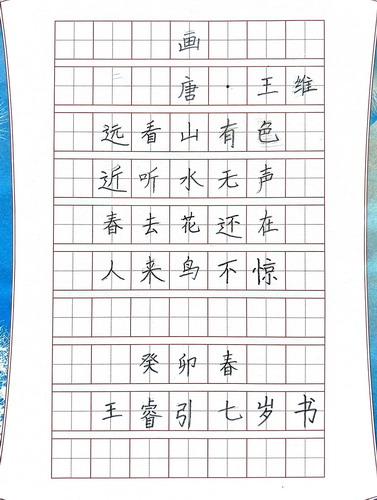 画
唐·王维
远看山有色
近听水无声
春去花还在
人来鸟不惊
癸卯春
王睿引七岁书